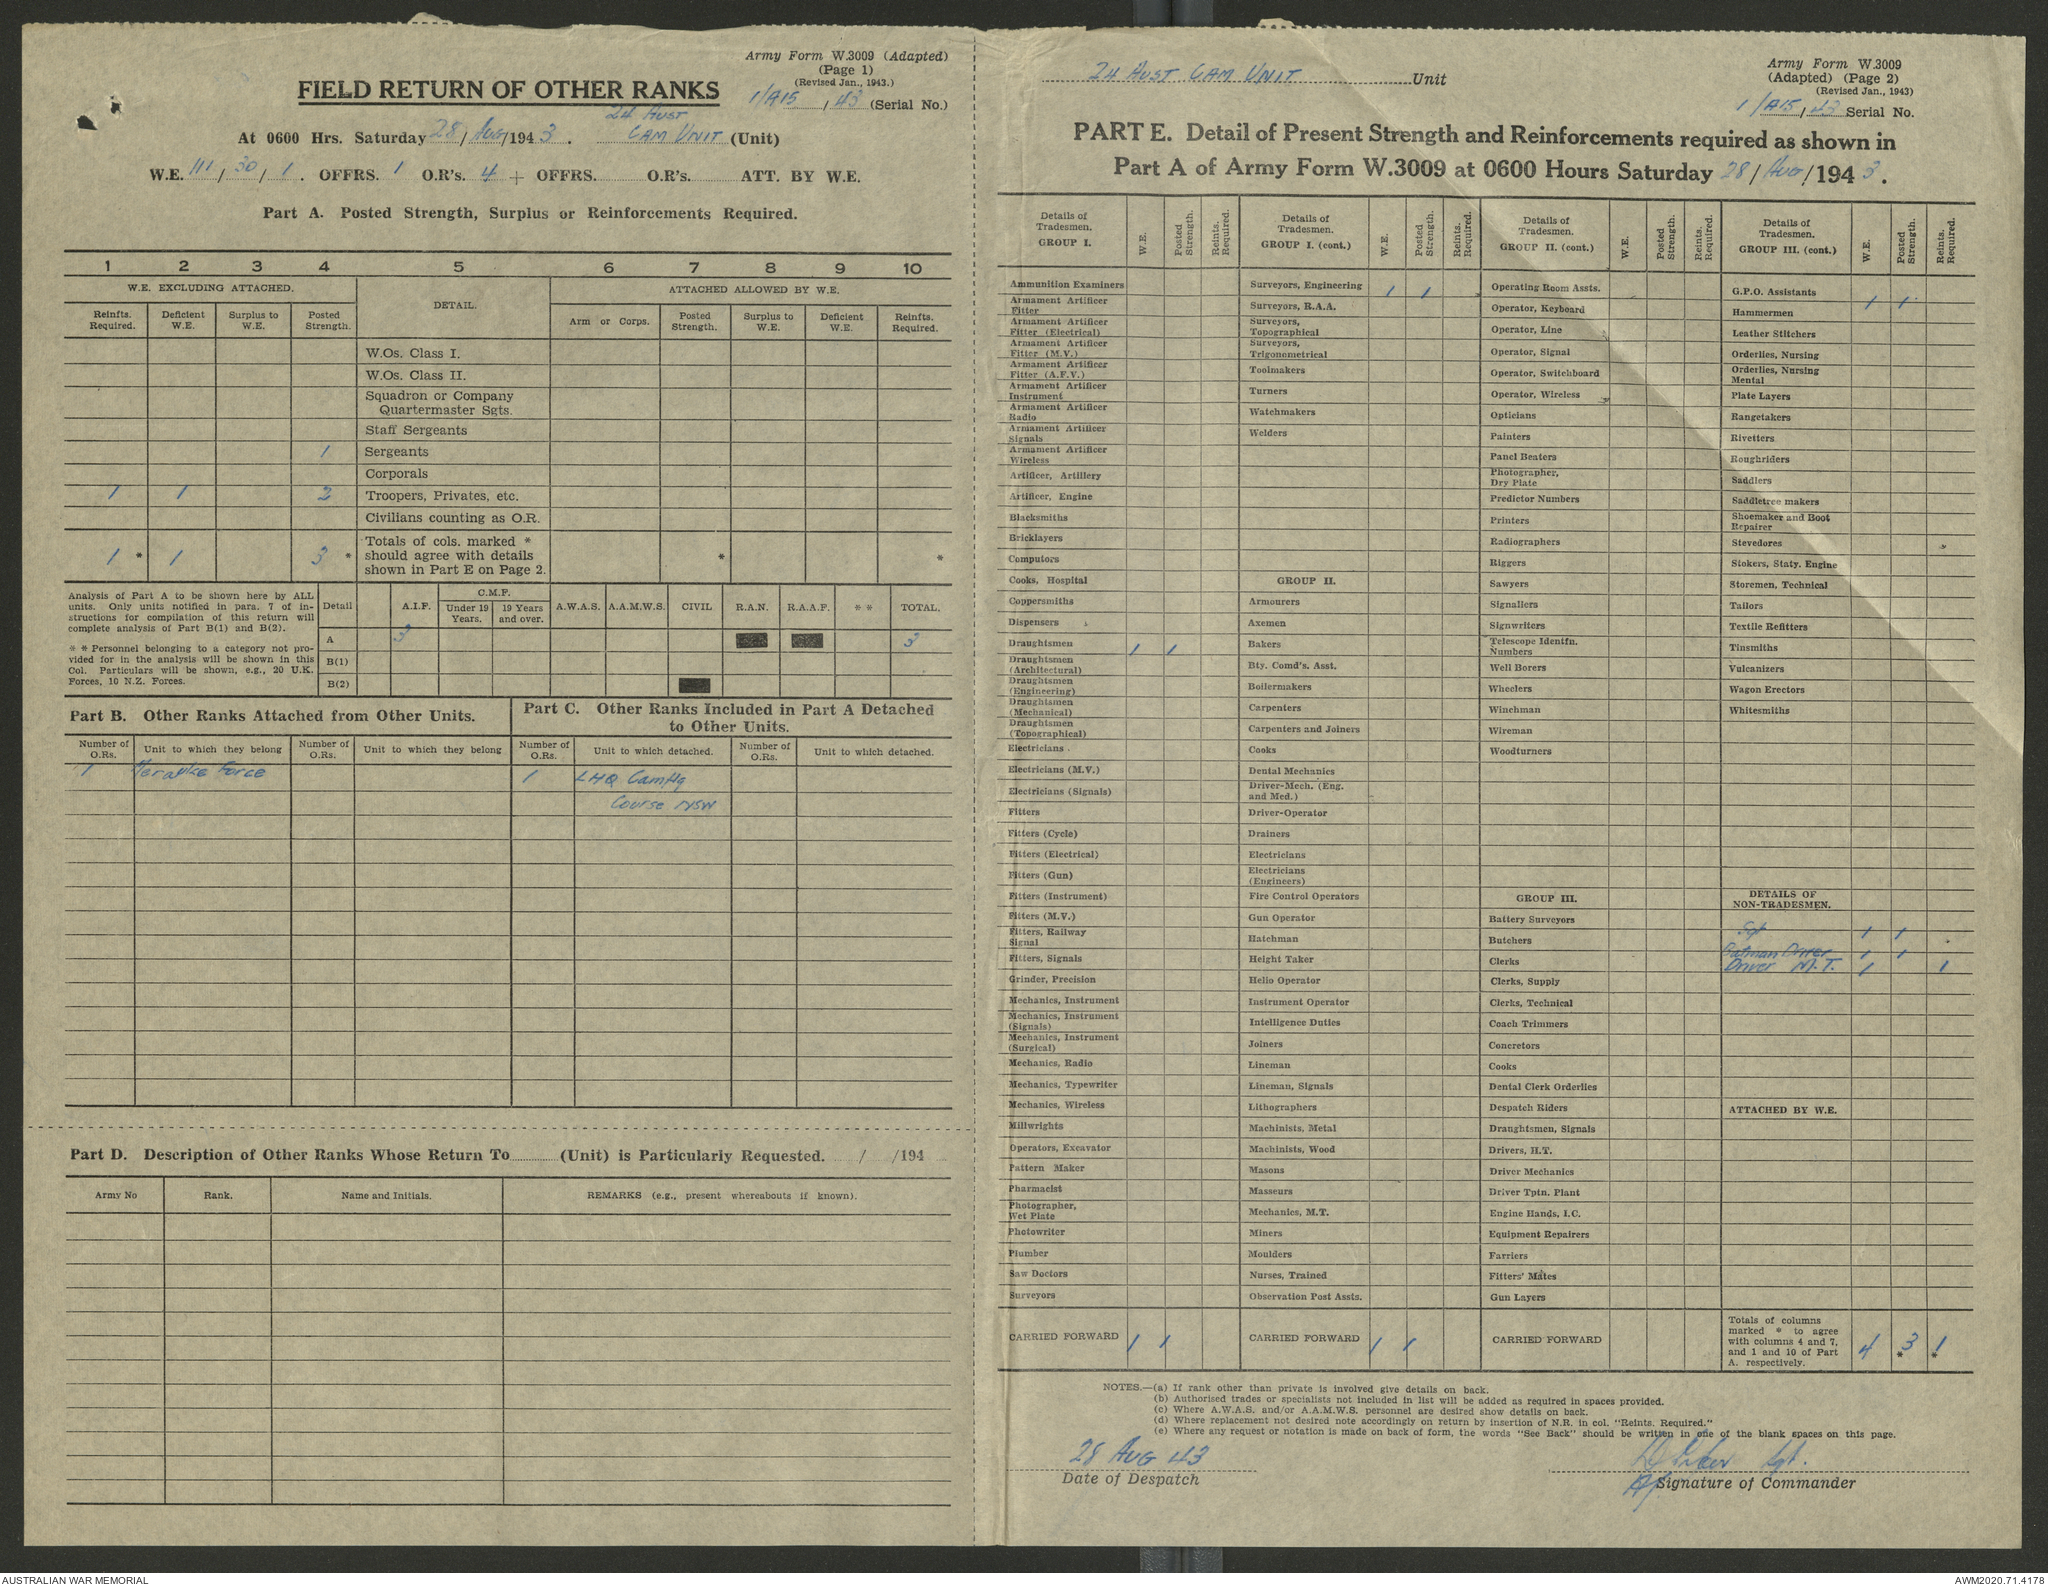 Army Form W.3009 (Adapted)
(Page 1)
(Revised Jan., 1943.)
FIELD RETURN OF OTHER RANKS
1/A15 / 43 (Serial No.)
At 0600 Hrs. Saturday 28 / Aug / 1943. 24 Aust Cam Unit (Unit)
W.E. 111 / 30 / 1. OFFRS. 1 O.R's. 4 + OFFRS. O.R's. ATT. BY W.E.
Part A. Posted Strength, Surplus or Reinforcements Required.
1 2 3 4 5 6 7 8 9 10
W.E. EXCLUDING ATTACHED. DETAIL. ATTACHED ALLOWED BY W.E.
Reinfts. Required. Deficient W.E. Surplus to W.E. Posted Strength. Arm or Corps. Posted Strength. Surplus to W.E. Deficient W.E. Reinfts. Required.
W.Os. Class I.
W.Os. Class II.
Squadron or Company
Quartermaster Sgts.
Staff Sergeants
1 Sergeants
Corporals
1 1 2 Troopers, Privates, etc.
Civilians counting as O.R.
1 * 1 3 * Totals of cols. marked * should agree with details shown in Part E on Page 2. * *
Analysis of Part A to be shown here by ALL
units. Only units notified in para. 7 of in-
structions for compilation of this return will
complete analysis of Part B(1) and B(2).
* * Personnel belonging to a category not pro-
vided for in the analysis will be shown in this
Col. Particulars will be shown, e.g., 20 U.K.
Forces, 10 N.Z. Forces.
Detail A.I.F. C.M.F. Under 19 Years. 19 Years and over. A.W.A.S. A.A.M.W.S. CIVIL R.A.N. R.A.A.F. * * TOTAL.
A 3 3
B(1)
B(2)
Part B. Other Ranks Attached from Other Units.
Part C. Other Ranks Included in Part A Detached
to Other Units.
Number of O.Rs. Unit to which they belong Number of O.Rs. Unit to which they belong Number of O.Rs. Unit to which detached. Number of O.Rs. Unit to which detached.
1 Merauke Force 1 LHQ Camflg
Course NSW
Part D. Description of Other Ranks Whose Return To (Unit) is Particularly Requested. / /194
Army No Rank. Name and Initials. REMARKS (e.g., present whereabouts if known).
24 Aust Cam Unit Unit
Army Form W.3009
(Adapted) (Page 2)
(Revised Jan., 1943)
1/A15 / 43 Serial No.
PART E. Detail of Present Strength and Reinforcements required as shown in
Part A of Army Form W.3009 at 0600 Hours Saturday 28 / Aug / 1943.
Details of Tradesmen. GROUP I. W.E. Posted Strength. Reints. Required.
Ammunition Examiners
Armament Artificer Fitter
Armament Artificer Fitter (Electrical)
Armament Artificer Fitter (M.V.)
Armament Artificer Fitter (A.F.V.)
Armament Artificer Instrument
Armament Artificer Radio
Armament Artificer Signals
Armament Artificer Wireless
Artificer, Artillery
Artificer, Engine
Blacksmiths
Bricklayers
Computors
Cooks, Hospital
Coppersmiths
Dispensers
Draughtsmen 1 1
Draughtsmen (Architectural)
Draughtsmen (Engineering)
Draughtsmen (Mechanical)
Draughtsmen (Topographical)
Electricians
Electricians (M.V.)
Electricians (Signals)
Fitters
Fitters (Cycle)
Fitters (Electrical)
Fitters (Gun)
Fitters (Instrument)
Fitters (M.V.)
Fitters, Railway Signal
Fitters, Signals
Grinder, Precision
Mechanics, Instrument
Mechanics, Instrument (Signals)
Mechanics, Instrument (Surgical)
Mechanics, Radio
Mechanics, Typewriter
Mechanics, Wireless
Millwrights
Operators, Excavator
Pattern Maker
Pharmacist
Photographer, Wet Plate
Photowriter
Plumber
Saw Doctors
Surveyors
CARRIED FORWARD 1 1
Details of Tradesmen. GROUP I. (cont.) W.E. Posted Strength. Reints. Required.
Surveyors, Engineering 1 1
Surveyors, R.A.A.
Surveyors, Topographical
Surveyors, Trigonometrical
Toolmakers
Turners
Watchmakers
Welders
GROUP II.
Armourers
Axemen
Bakers
Bty. Comd's. Asst.
Boilermakers
Carpenters
Carpenters and Joiners
Cooks
Dental Mechanics
Driver-Mech. (Eng. and Med.)
Driver-Operator
Drainers
Electricians
Electricians (Engineers)
Fire Control Operators
Gun Operator
Hatchman
Height Taker
Helio Operator
Instrument Operator
Intelligence Duties
Joiners
Lineman
Lineman, Signals
Lithographers
Machinists, Metal
Machinists, Wood
Masons
Masseurs
Mechanics, M.T.
Miners
Moulders
Nurses, Trained
Observation Post Assts.
CARRIED FORWARD 1 1
Details of Tradesmen. GROUP II. (cont.) W.E. Posted Strength. Reints. Required.
Operating Room Assts.
Operator, Keyboard
Operator, Line
Operator, Signal
Operator, Switchboard
Operator, Wireless
Opticians
Painters
Panel Beaters
Photographer, Dry Plate
Predictor Numbers
Printers
Radiographers
Riggers
Sawyers
Signallers
Signwriters
Telescope Identfn. Numbers
Well Borers
Wheelers
Winchman
Wireman
Woodturners
GROUP III.
Battery Surveyors
Butchers
Clerks
Clerks, Supply
Clerks, Technical
Coach Trimmers
Concretors
Cooks
Dental Clerk Orderlies
Despatch Riders
Draughtsmen, Signals
Drivers, H.T.
Driver Mechanics
Driver Tptn. Plant
Engine Hands, I.C.
Equipment Repairers
Farriers
Fitters' Mates
Gun Layers
CARRIED FORWARD
Details of Tradesmen. GROUP III. (cont.) W.E. Posted Strength. Reints Required.
G.P.O. Assistants 1 1
Hammermen
Leather Stitchers
Orderlies, Nursing
Orderlies, Nursing Mental
Plate Layers
Rangetakers
Rivetters
Roughriders
Saddlers
Saddletree makers
Shoemaker and Boot Repairer
Stevedores
Stokers, Staty. Engine
Storemen, Technical
Tailors
Textile Refitters
Tinsmiths
Vulcanizers
Wagon Erectors
Whitesmiths
DETAILS OF NON-TRADESMEN.
Sgt 1 1
Batman Driver 1 1
Driver M.T. 1 1
ATTACHED BY W.E.
Totals of columns marked * to agree with columns 4 and 7, and 1 and 10 of Part A. respectively. 4 * 3 * 1
NOTES.—(a) If rank other than private is involved give details on back.
(b) Authorised trades or specialists not included in list will be added as required in spaces provided.
(c) Where A.W.A.S. and/or A.A.M.W.S. personnel are desired show details on back.
(d) Where replacement not desired note accordingly on return by insertion of N.R. in col. "Reints. Required."
(e) Where any request or notation is made on back of form, the words "See Back" should be written in one of the blank spaces on this page.
28 Aug 43
Date of Despatch
Sgt.
Signature of Commander
AUSTRALIAN WAR MEMORIAL
AWM2020.71.4178